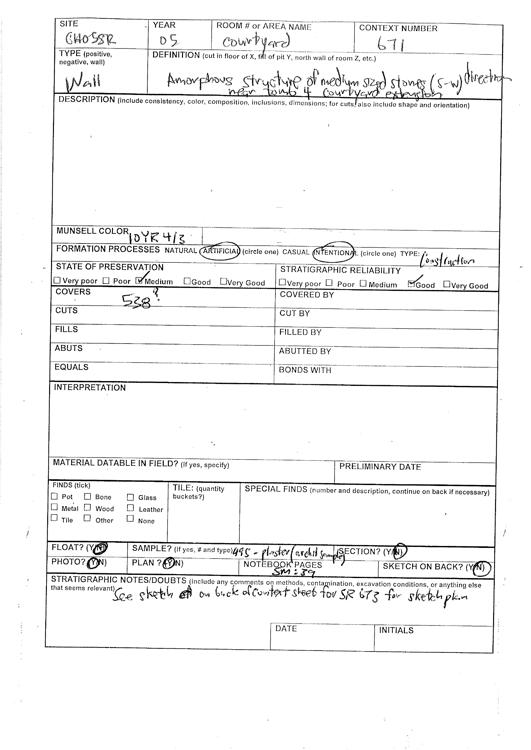 SITE YEAR ROOM # or AREA NAME CONTEXT NUMBER
CHO5SR 05 Courtyard 671
TYPE (positive, negative, wall) DEFINITION (cut in floor of X, fill of pit Y, north wall of room Z, etc.)
Wall Amorphous structure of medium sized stones (S-W) direction
near tomb 4 courtyard extension
DESCRIPTION (include consistency, color, composition, inclusions, dimensions; for cuts, also include shape and orientation)
MUNSELL COLOR 10YR 4/3
FORMATION PROCESSES NATURAL ARTIFICIAL (circle one) CASUAL INTENTIONAL (circle one) TYPE: Construction
STATE OF PRESERVATION STRATIGRAPHIC RELIABILITY
☐Very poor ☐Poor ☑Medium ☐Good ☐Very Good ☐Very poor ☐Poor ☐Medium ☑Good ☐Very Good
COVERS 538? COVERED BY
CUTS CUT BY
FILLS FILLED BY
ABUTS ABUTTED BY
EQUALS BONDS WITH
INTERPRETATION
MATERIAL DATABLE IN FIELD? (If yes, specify) PRELIMINARY DATE
FINDS (tick) TILE: (quantity buckets?) SPECIAL FINDS (number and description, continue on back if necessary)
☐ Pot ☐ Bone ☐ Glass
☐ Metal ☐ Wood ☐ Leather
☐ Tile ☐ Other ☐ None
FLOAT? (Y/N) SAMPLE? (If yes, # and type) 495 - plaster/archit sample SECTION? (Y/N)
PHOTO? (Y/N) PLAN? (Y/N) NOTEBOOK PAGES SM: 39 SKETCH ON BACK? (Y/N)
STRATIGRAPHIC NOTES/DOUBTS (Include any comments on methods, contamination, excavation conditions, or anything else
that seems relevant) See sketch on back of context sheet for SR 673 for sketch plan
DATE INITIALS